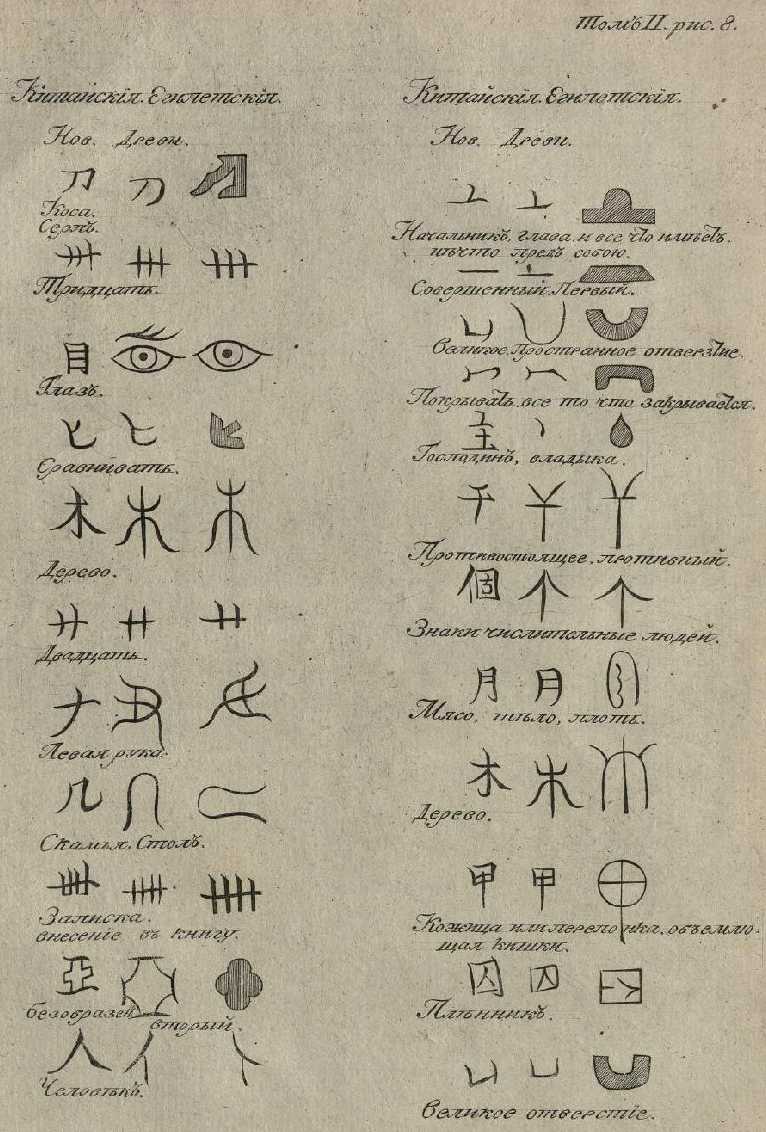 Томъ II. рис. 8.
Китайскія. Египетскія.
Нов. Древн.
刀
Коса.
Серпъ.
卅
Тридцать.
目
Глазъ.
匕
Сравнивать.
木
Дерево.
廾
Двадцать.
𠂇
Левая рука.
几
Скамья. Столъ.
卌
Записка.
внесеніе въ книгу.
亞
безобразен вторый.
人
Человѣкъ.
Китайскія. Египетскія.
Нов. Древн.
Начальникъ, глава и все что имѣетъ
нѣчто предъ собою.
一
Совершенный. Первый.
凵
Великое, пространное отверзтіе.
冖
Покрывать все то что закрывается.
主
Господинъ, владыка.
干
Противостоящее, противный.
個
Знаки числительные людей.
月
Мясо, тѣло, плоть.
木
Дерево.
甲
Кожица или перепонка, объемлю-
щая кишки.
囚
Плѣнникъ.
凵
Великое отверстіе.